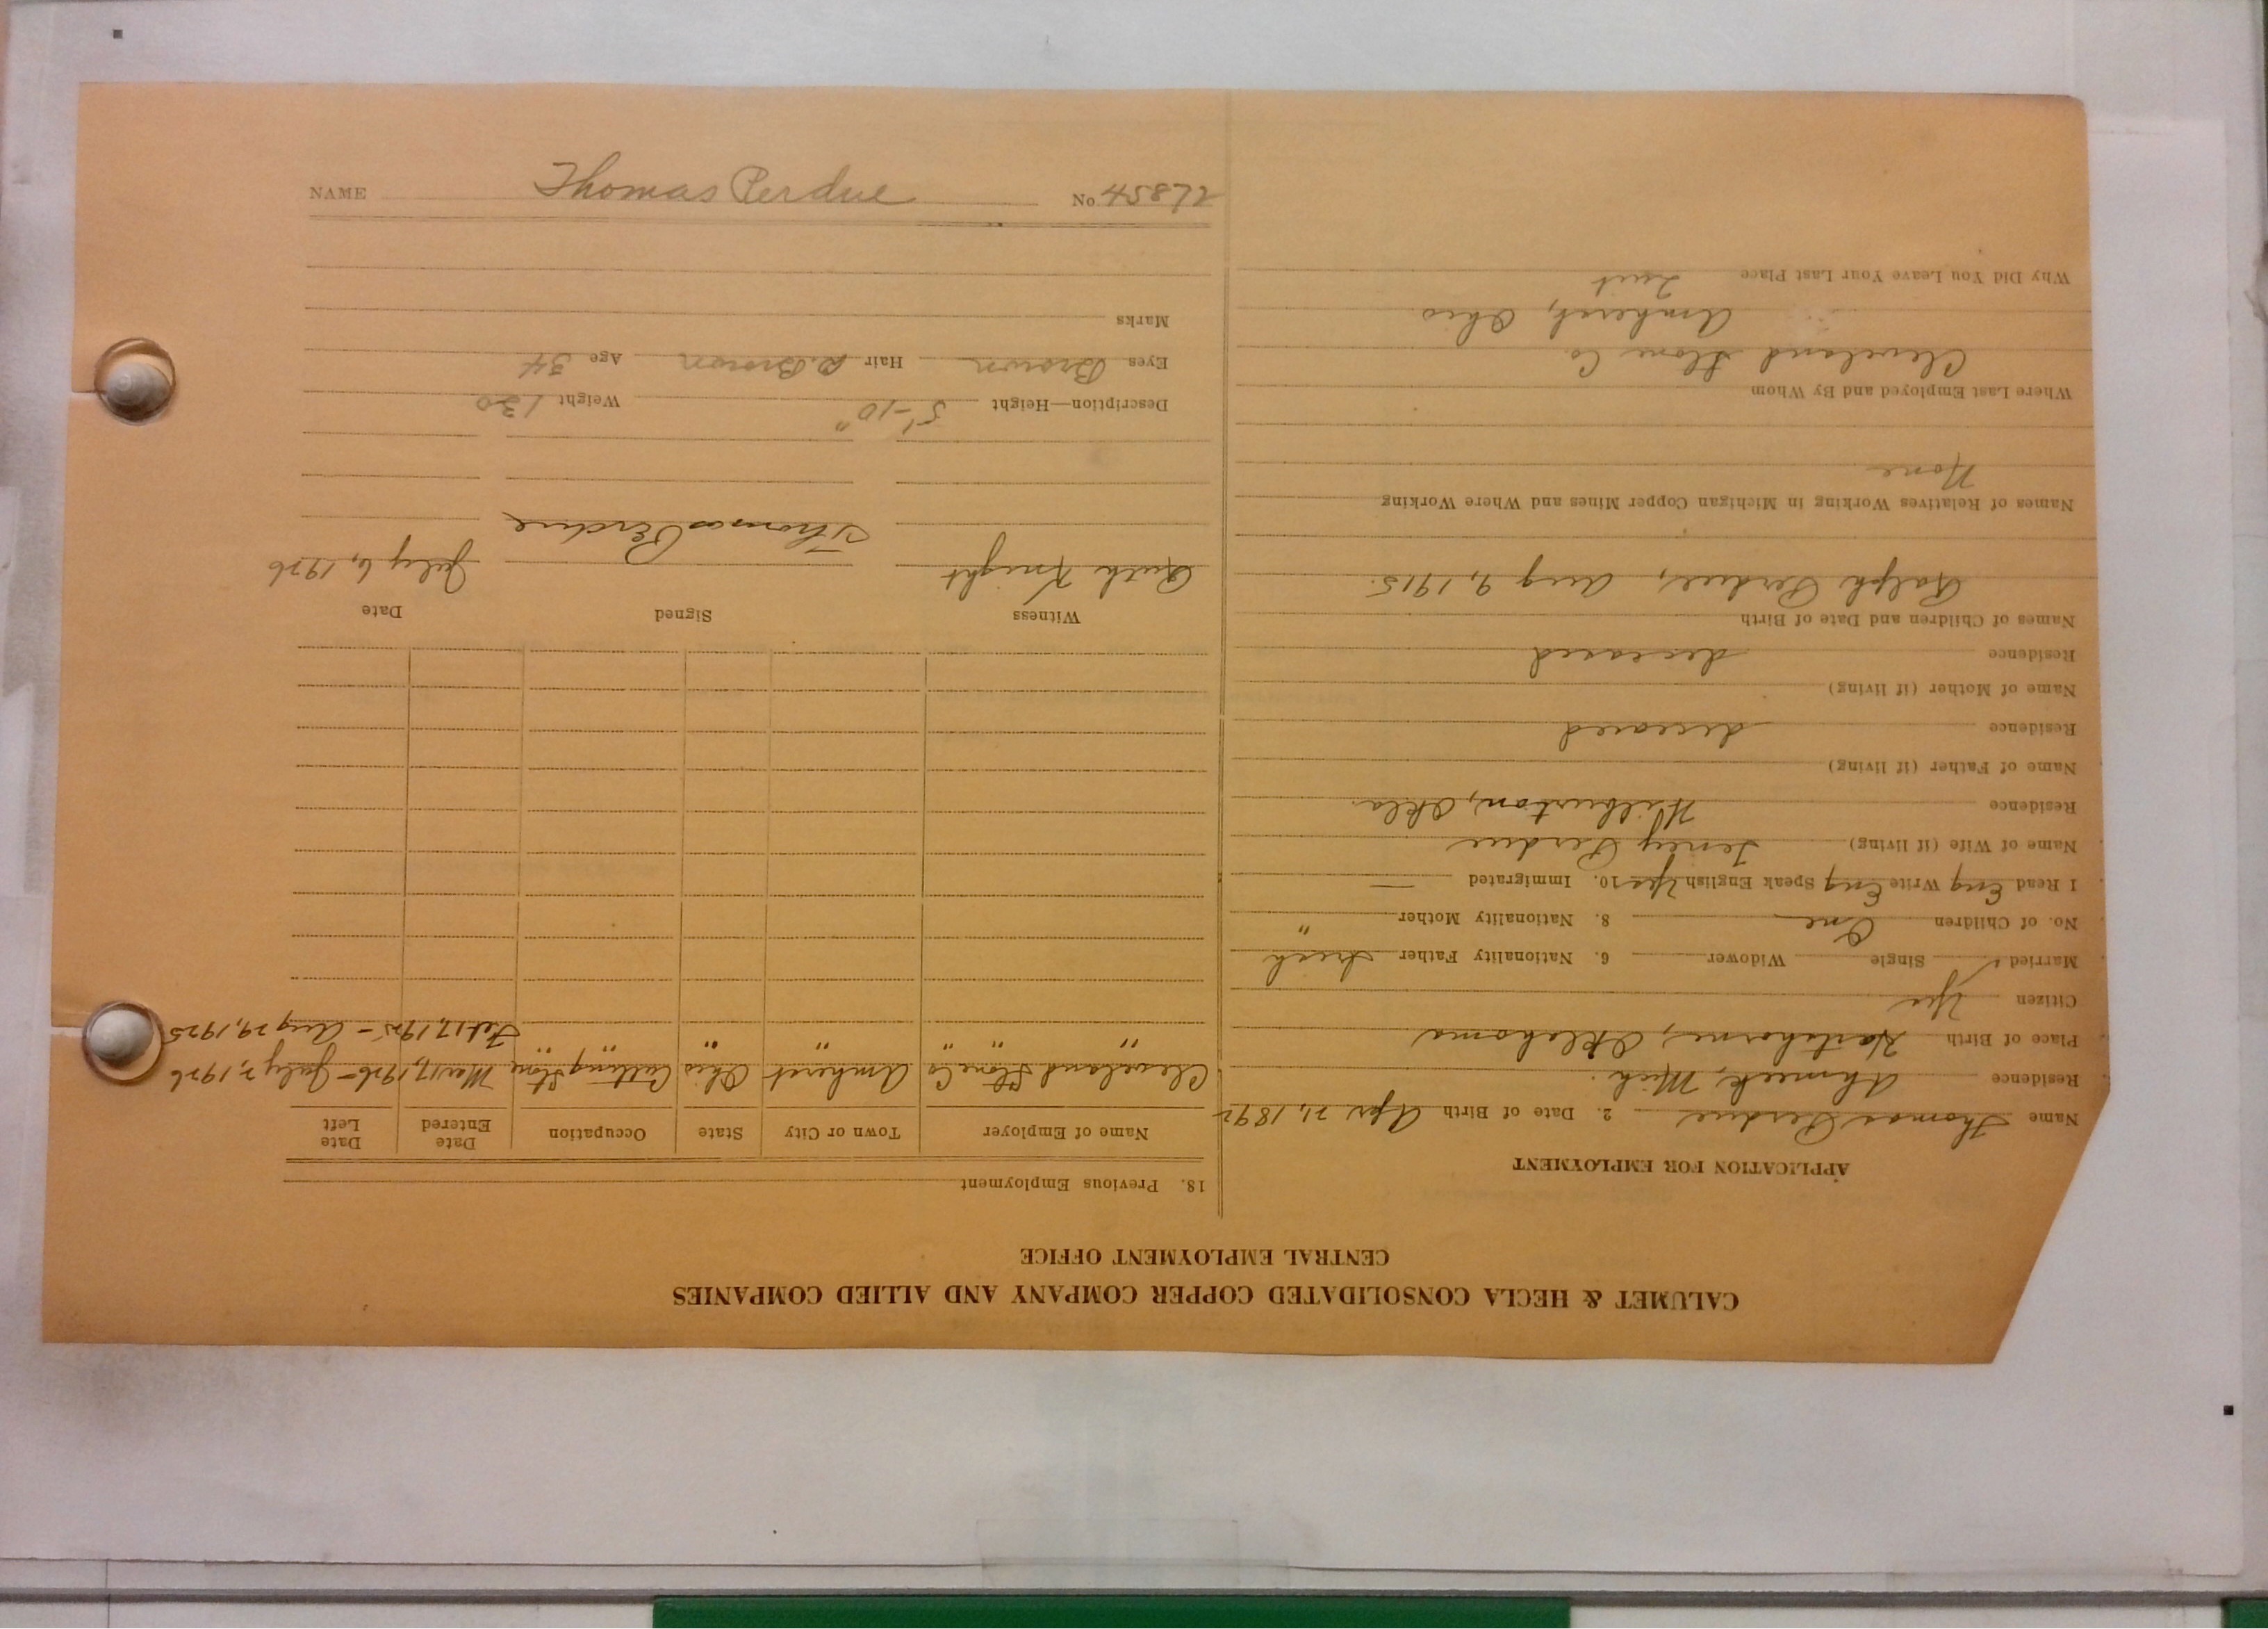 CALUMET & HECLA CONSOLIDATED COPPER COMPANY AND ALLIED COMPANIES
CENTRAL EMPLOYMENT OFFICE
APPLICATION FOR EMPLOYMENT
Name Thomas Perdue 2. Date of Birth Apr 21, 1892
Residence Ahmeek, Mich.
Place of Birth Hartshorne, Oklahoma
Citizen Yes
Married ✓ Single Widower 6. Nationality Father Irish
No. of Children One 8. Nationality Mother "
I Read Eng Write Eng Speak English Yes 10. Immigrated —
Name of Wife (if living) Perdue
Residence Wilburton, Okla.
Name of Father (if living)
Residence deceased
Name of Mother (if living)
Residence deceased
Names of Children and Date of Birth
Ralph Perdue, Aug 9, 1915.
Names of Relatives Working in Michigan Copper Mines and Where Working
None
Where Last Employed and By Whom
Cleveland Stone Co.
Amherst, Ohio
Why Did You Leave Your Last Place Quit
18. Previous Employment
Name of Employer Town or City State Occupation Date Entered Date Left
Cleveland Stone Co Amherst Ohio Cutting Stone 17, 1926 - July 2, 1926
" " " " " " " Feb 17, 1925 - Aug 29, 1925
Witness Signed Date
Ruth Knight Thomas Perdue July 6, 1926
Description—Height 5'-10" Weight 130
Eyes Brown Hair D. Brown Age 34
Marks
NAME Thomas Perdue No. 45872